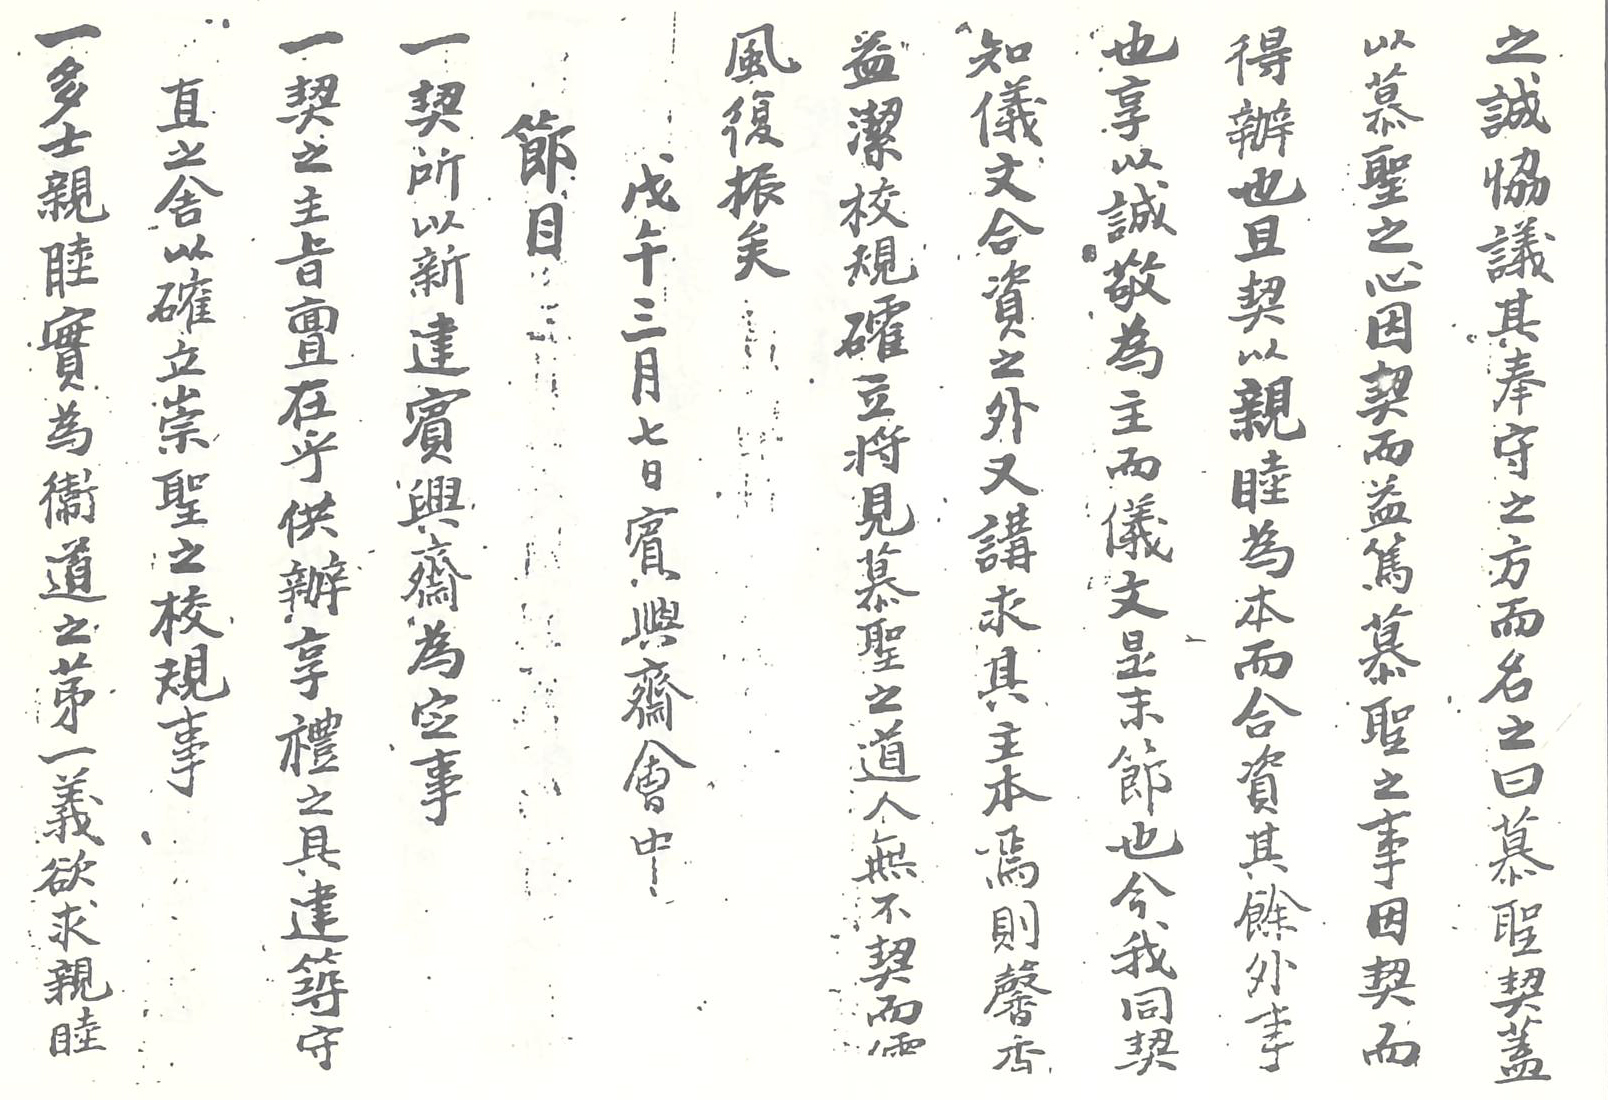 之誠協議其奉守之方而名之曰慕聖契蓋
以慕聖之心因契而益篤慕聖之事因契而
得辦也且契以親睦為本而合資其餘外事
也享以誠敬為主而儀文是末節也今我同契
知儀文合資之外又講求其主本焉則馨香
益潔校規確立將見慕聖之道人無不契而儒
風復振矣
戊午三月七日賓興齋會中
節目
一契所以新建賓興齋為定事
一契之主旨亶在乎供辦享禮之具建等守
直之舍以確立崇聖之校規事
一多士親睦實為衛道之第一義欲求親睦